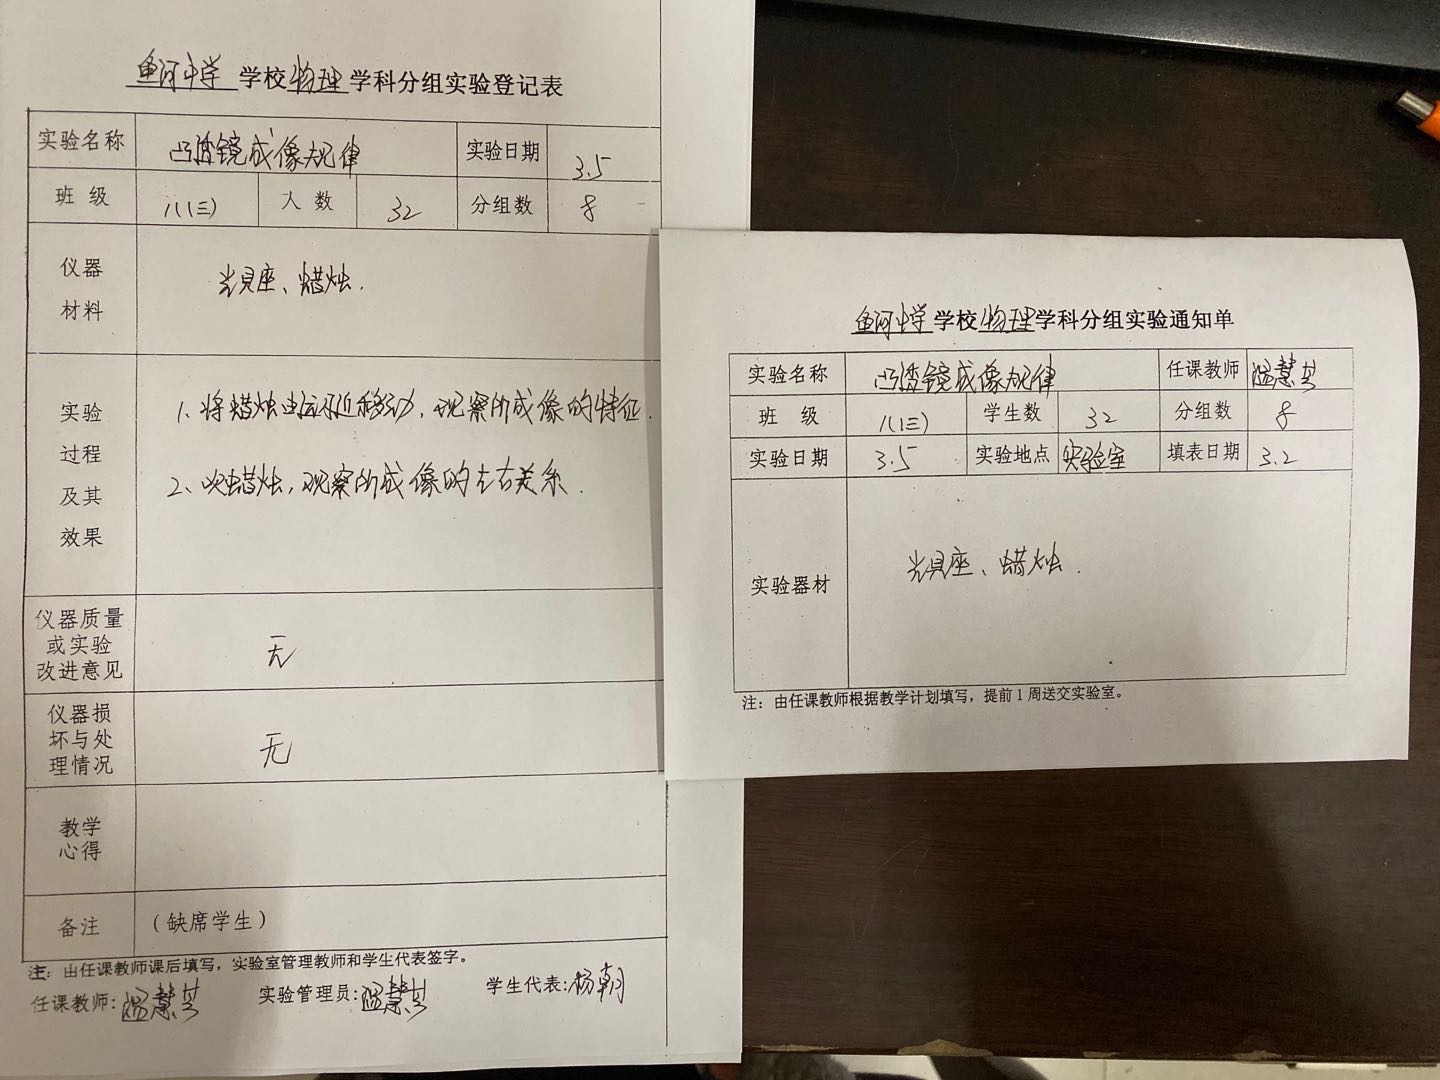 鱼河中学 学校 物理 学科分组实验登记表
实验名称 凸透镜成像规律 实验日期 3.5
班 级 八(三) 人 数 32 分组数 8
仪器材料 光具座、蜡烛.
实验过程及其效果 1、将蜡烛由远及近移动,观察所成像的特征.
2、吹蜡烛,观察所成像的左右关系.
仪器质量或实验改进意见 无
仪器损坏与处理情况 无
教学心得
备注 (缺席学生)
注:由任课教师课后填写,实验室管理教师和学生代表签字。
任课教师: 实验管理员: 学生代表:杨朝
鱼河中学 学校 物理 学科分组实验通知单
实验名称 凸透镜成像规律 任课教师
班 级 八(三) 学生数 32 分组数 8
实验日期 3.5 实验地点 实验室 填表日期 3.2
实验器材 光具座、蜡烛.
注:由任课教师根据教学计划填写,提前1周送交实验室。